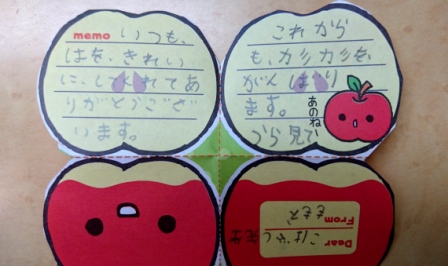 memo いつも、
はを、きれい
に、してくれてあ
りがとうござ
います。
これから
も、カリカリを、
がんばり
ます。
あのね
うら見て
Dear こばやし先生
From